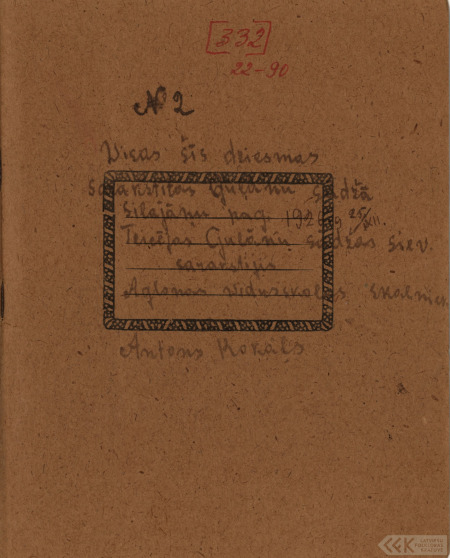 [332]
22-90
№ 2
Visas šīs dziesmas
sarakstītas Guļānu sādžā
Silajāņu pag. 1926 g 25/XII.
Teicējas Guļānu sādžas siev.
sarakstījis
Aglonas vidusskolas skolnieks
Antons Rokāls